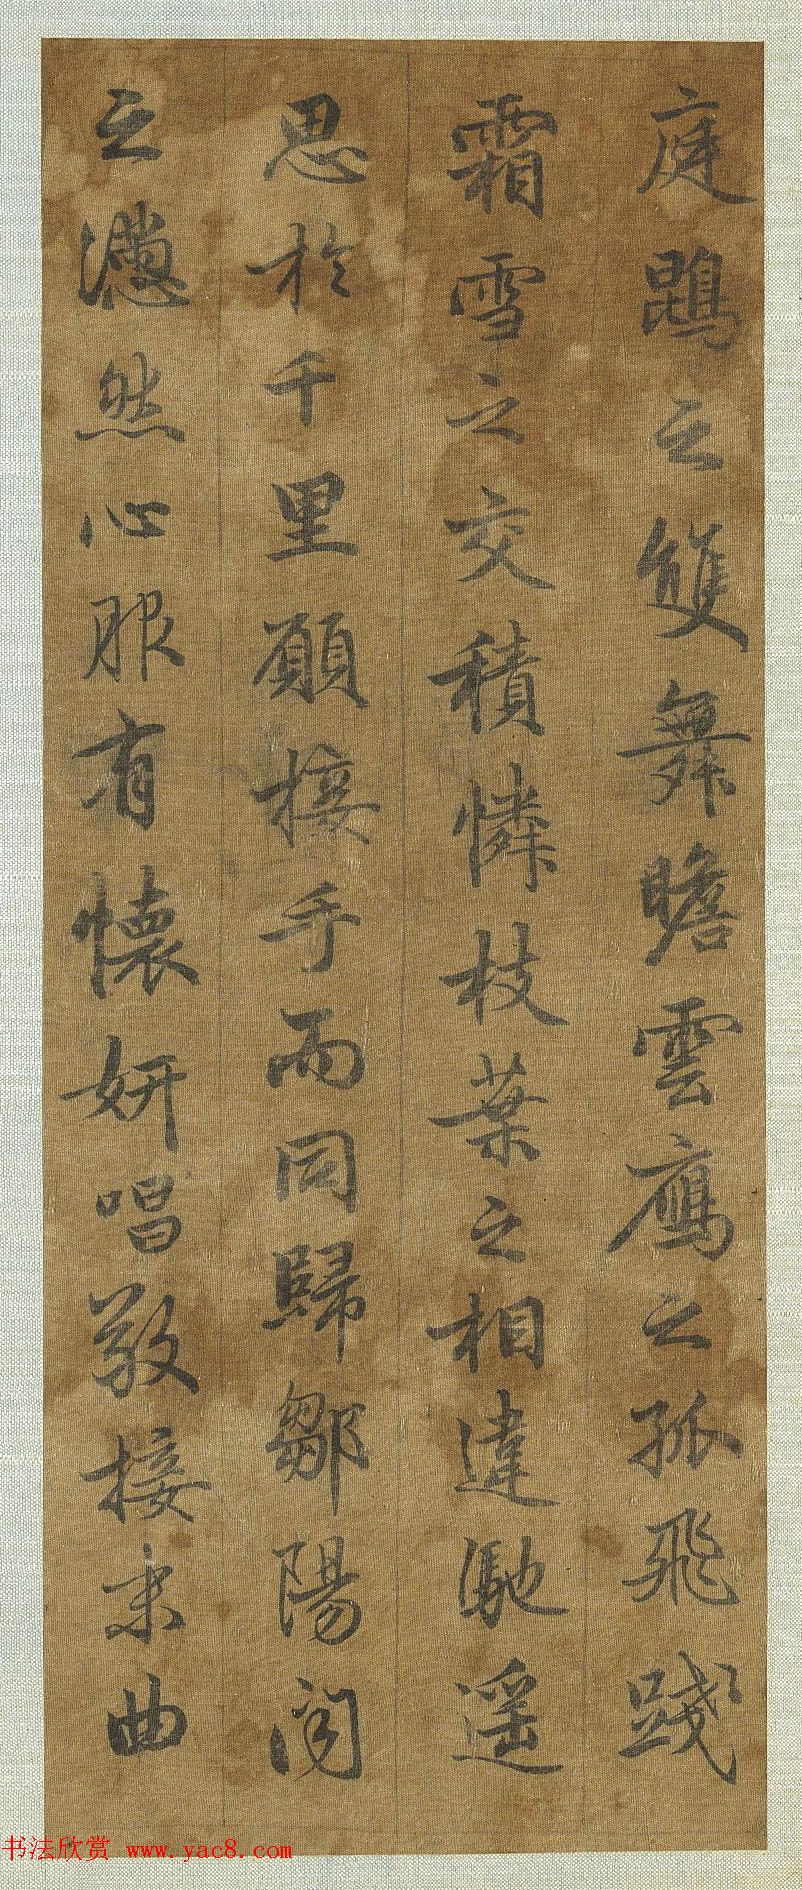 庭鵾之雙舞瞻雲鴈之孤飛踐
霜雪之交積憐枝葉之相違馳遥
思於千里願接手而同歸鄒陽聞
之懣然心服有懷妍唱敬接末曲
书法欣赏 www.yac8.com